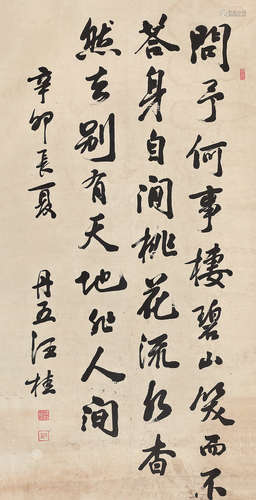 問予何事棲碧山笑而不
荅身自閒桃花流水杳
然去別有天地非人間
辛卯長夏 丹五汪桂